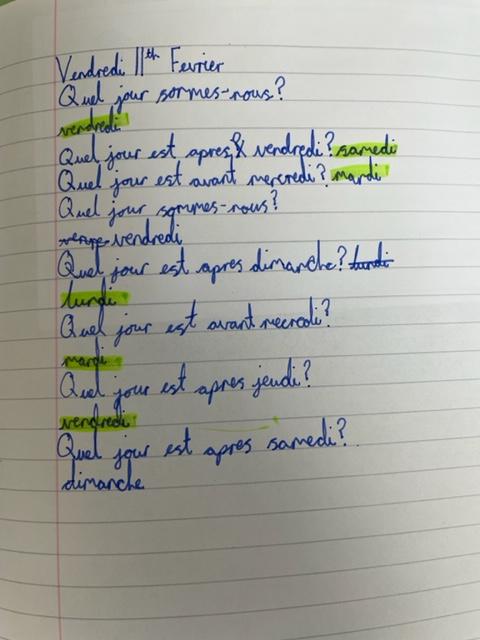 Vendredi 11th Fevrier
Quel jour sommes-nous?
vendredi
Quel jour est apres vendredi? samedi
Quel jour est avant mercredi? mardi
Quel jour sommes-nous?
vendredi
Quel jour est apres dimanche? lundi
lundi
Quel jour est avant mecredi?
mardi
Quel jour est apres jeudi?
vendredi
Quel jour est apres samedi?
dimanche